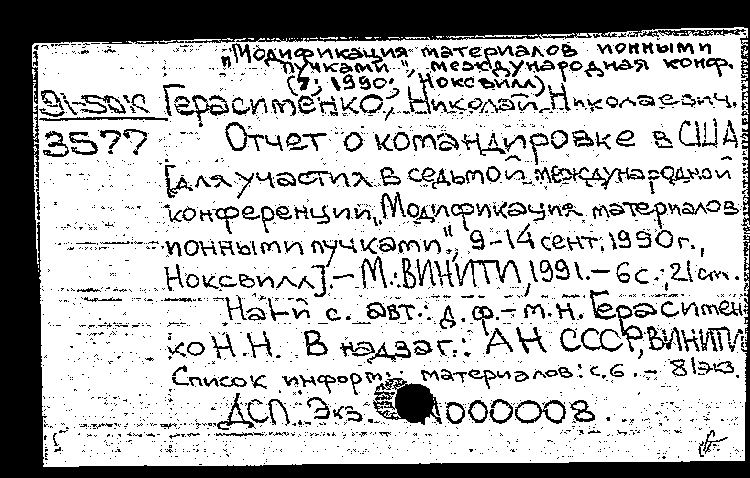 „Модификация материалов ионными
пучками", международная конф.
(7; 1990; Ноксвилл)
91-50к Герасименко, Николай Николаевич.
3577 Отчет о командировке в США
[для участия в седьмой международной
конференции „Модификация материалов
ионными пучками", 9-14 сент. 1990 г.,
Ноксвилл]. – М.: ВИНИТИ, 1991. – 6 с.; 21 см.
На 1-й с. авт.: д. ф.-м. н. Герасимен
ко Н.Н. В надзаг.: АН СССР, ВИНИТИ
Список информ. материалов: с. 6. – 81 экз.
ДСП. Экз. N000008.